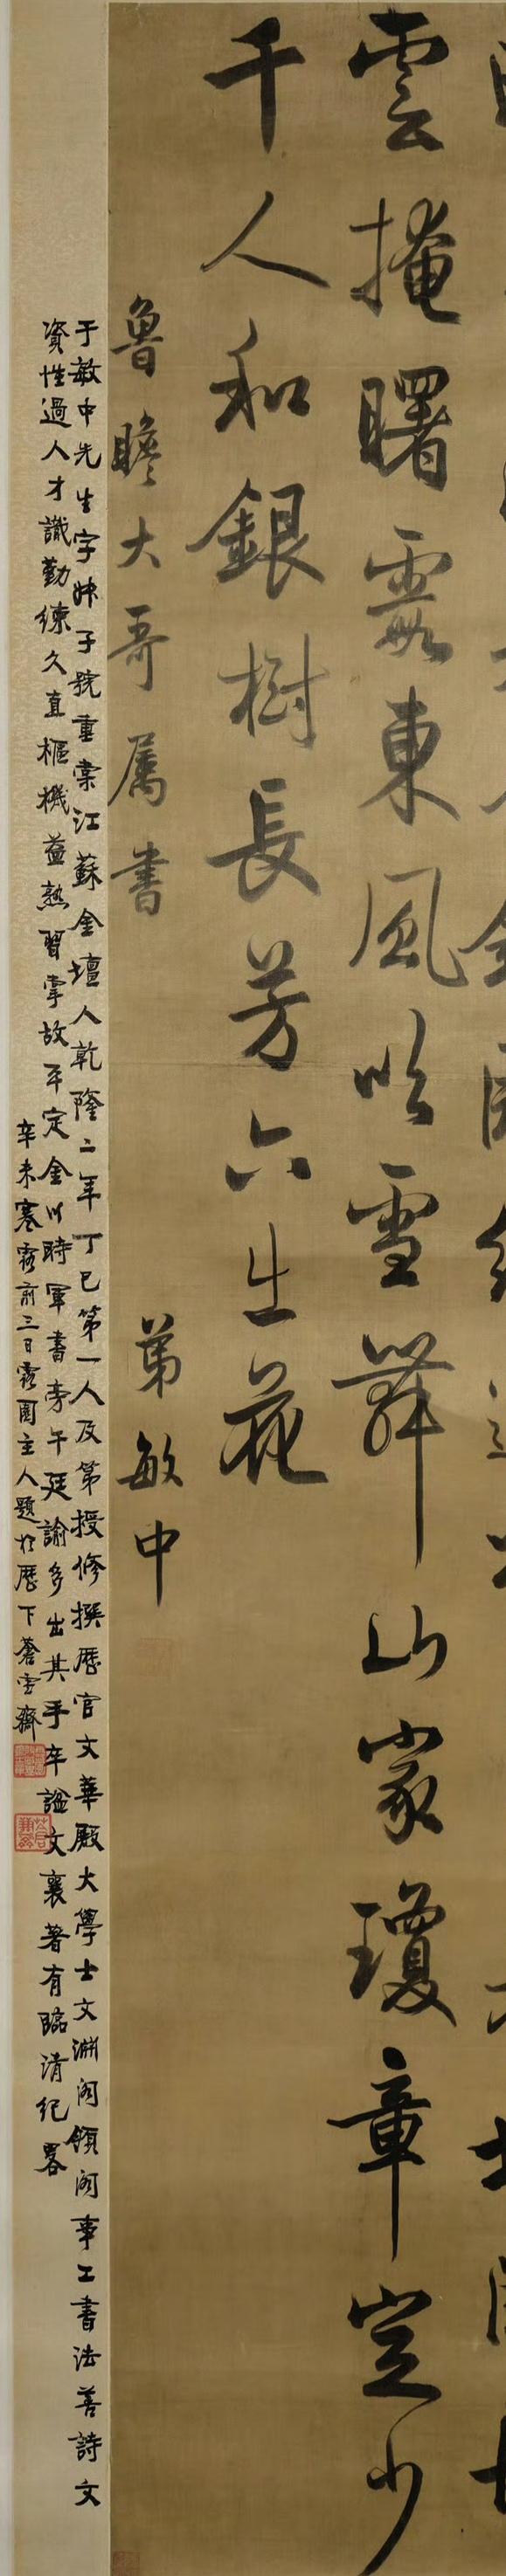 雲掩曙霞東風吹雪舞山家瓊章定少
千人和銀樹長芳六出花
魯瞻大哥屬書
弟敏中
于敏中先生字姝子號重棠江蘇金壇人乾隆二年丁巳第一人及第授修撰歷官文華殿大學士文淵閣領閣事工書法善詩文
資性過人才識勤練久直樞機益熟習掌故平定金川時軍書旁午廷諭多出其手卒諡文襄著有臨清紀略
辛未寒露前三日露園主人題於歷下蒼雪齋